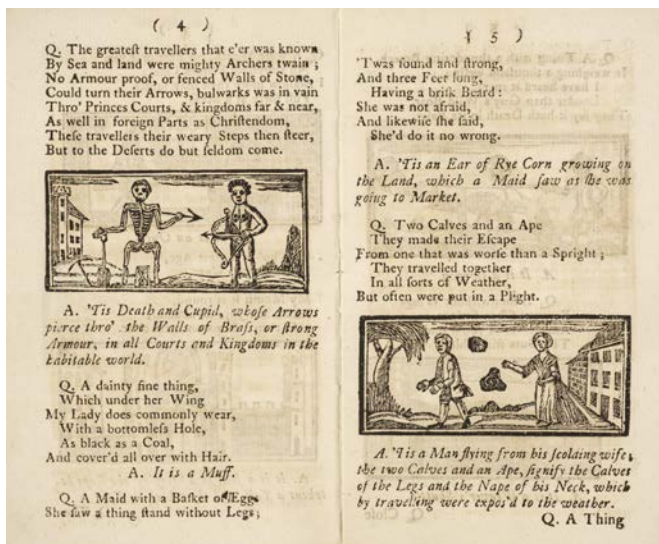 ( 4 )
Q. The greateſt travellers that e'er was known
By Sea and land were mighty Archers twain ;
No Armour proof, or fenced Walls of Stone,
Could turn their Arrows, bulwarks was in vain
Thro' Princes Courts, & kingdoms far & near,
As well in foreign Parts as Chriſtendom,
Theſe travellers their weary Steps then ſteer,
But to the Deſerts do but ſeldom come.
A. 'Tis Death and Cupid, whoſe Arrows
pierce thro' the Walls of Braſs, or ſtrong
Armour, in all Courts and Kingdoms in the
habitable world.
Q. A dainty fine thing,
Which under her Wing
My Lady does commonly wear,
With a bottomleſs Hole,
As black as a Coal,
And cover'd all over with Hair.
A. It is a Muff.
Q. A Maid with a Baſket of Eggs
She ſaw a thing ſtand without Legs;
( 5 )
'Twas found and ſtrong,
And three Feet long,
Having a briſk Beard :
She was not afraid,
And likewiſe ſhe ſaid,
She'd do it no wrong.
A. 'Tis an Ear of Rye Corn growing on
the Land, which a Maid ſaw as ſhe was
going to Market.
Q. Two Calves and an Ape
They made their Eſcape
From one that was worſe than a Spright ;
They travelled together
In all ſorts of Weather,
But often were put in a Plight.
A. 'Tis a Man flying from his ſcolding wife;
the two Calves and an Ape, ſignify the Calves
of the Legs and the Nape of his Neck, which
by travelling were expos'd to the weather.
Q. A Thing